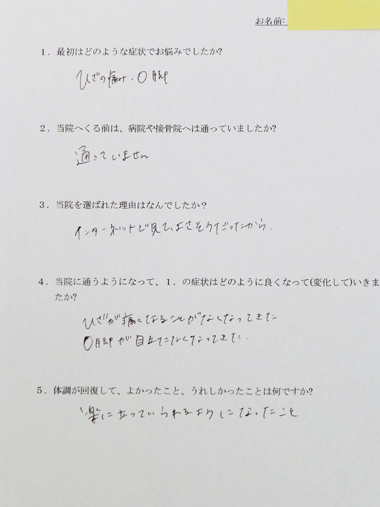 お名前:
1．最初はどのような症状でお悩みでしたか?
ひざの痛み・O脚
2．当院へくる前は、病院や接骨院へは通っていましたか?
通っていません
3．当院を選ばれた理由はなんでしたか？
インターネットで見て、よさそうだったから。
4．当院に通うようになって、1．の症状はどのように良くなって(変化して)いきま
たか?
ひざが痛くなることがなくなってきた
O脚が目立たなくなってきた。
5．体調が回復して、よかったこと、うれしかったことは何ですか?
楽に立っていられるようになったこと